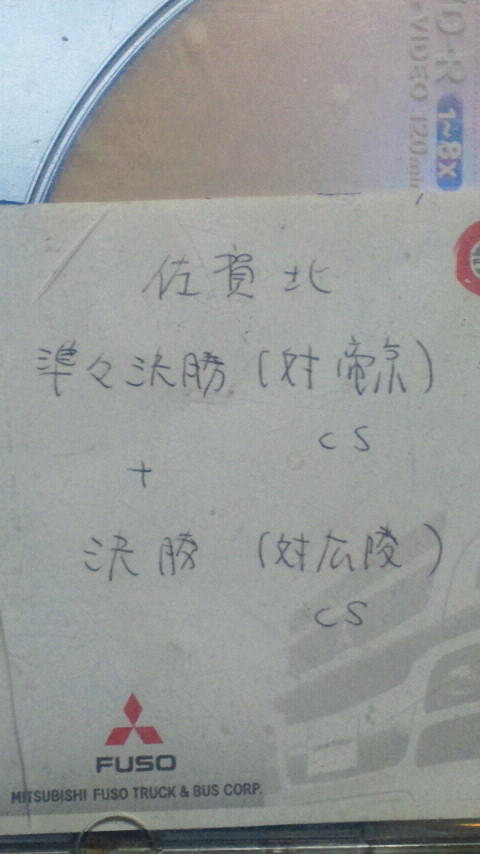 VD-R
VIDEO 120min
1~8x
佐賀北
準々決勝(対帝京)
CS
+
決勝(対広陵)
CS
FUSO
MITSUBISHI FUSO TRUCK & BUS CORP.